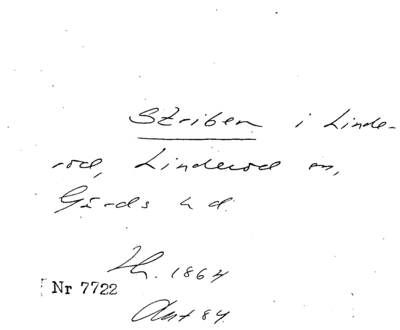 Striben i Linde-
röd, Linderöd sn,
Gärds hd
Th. 1864
Nr 7722
Ant 84.